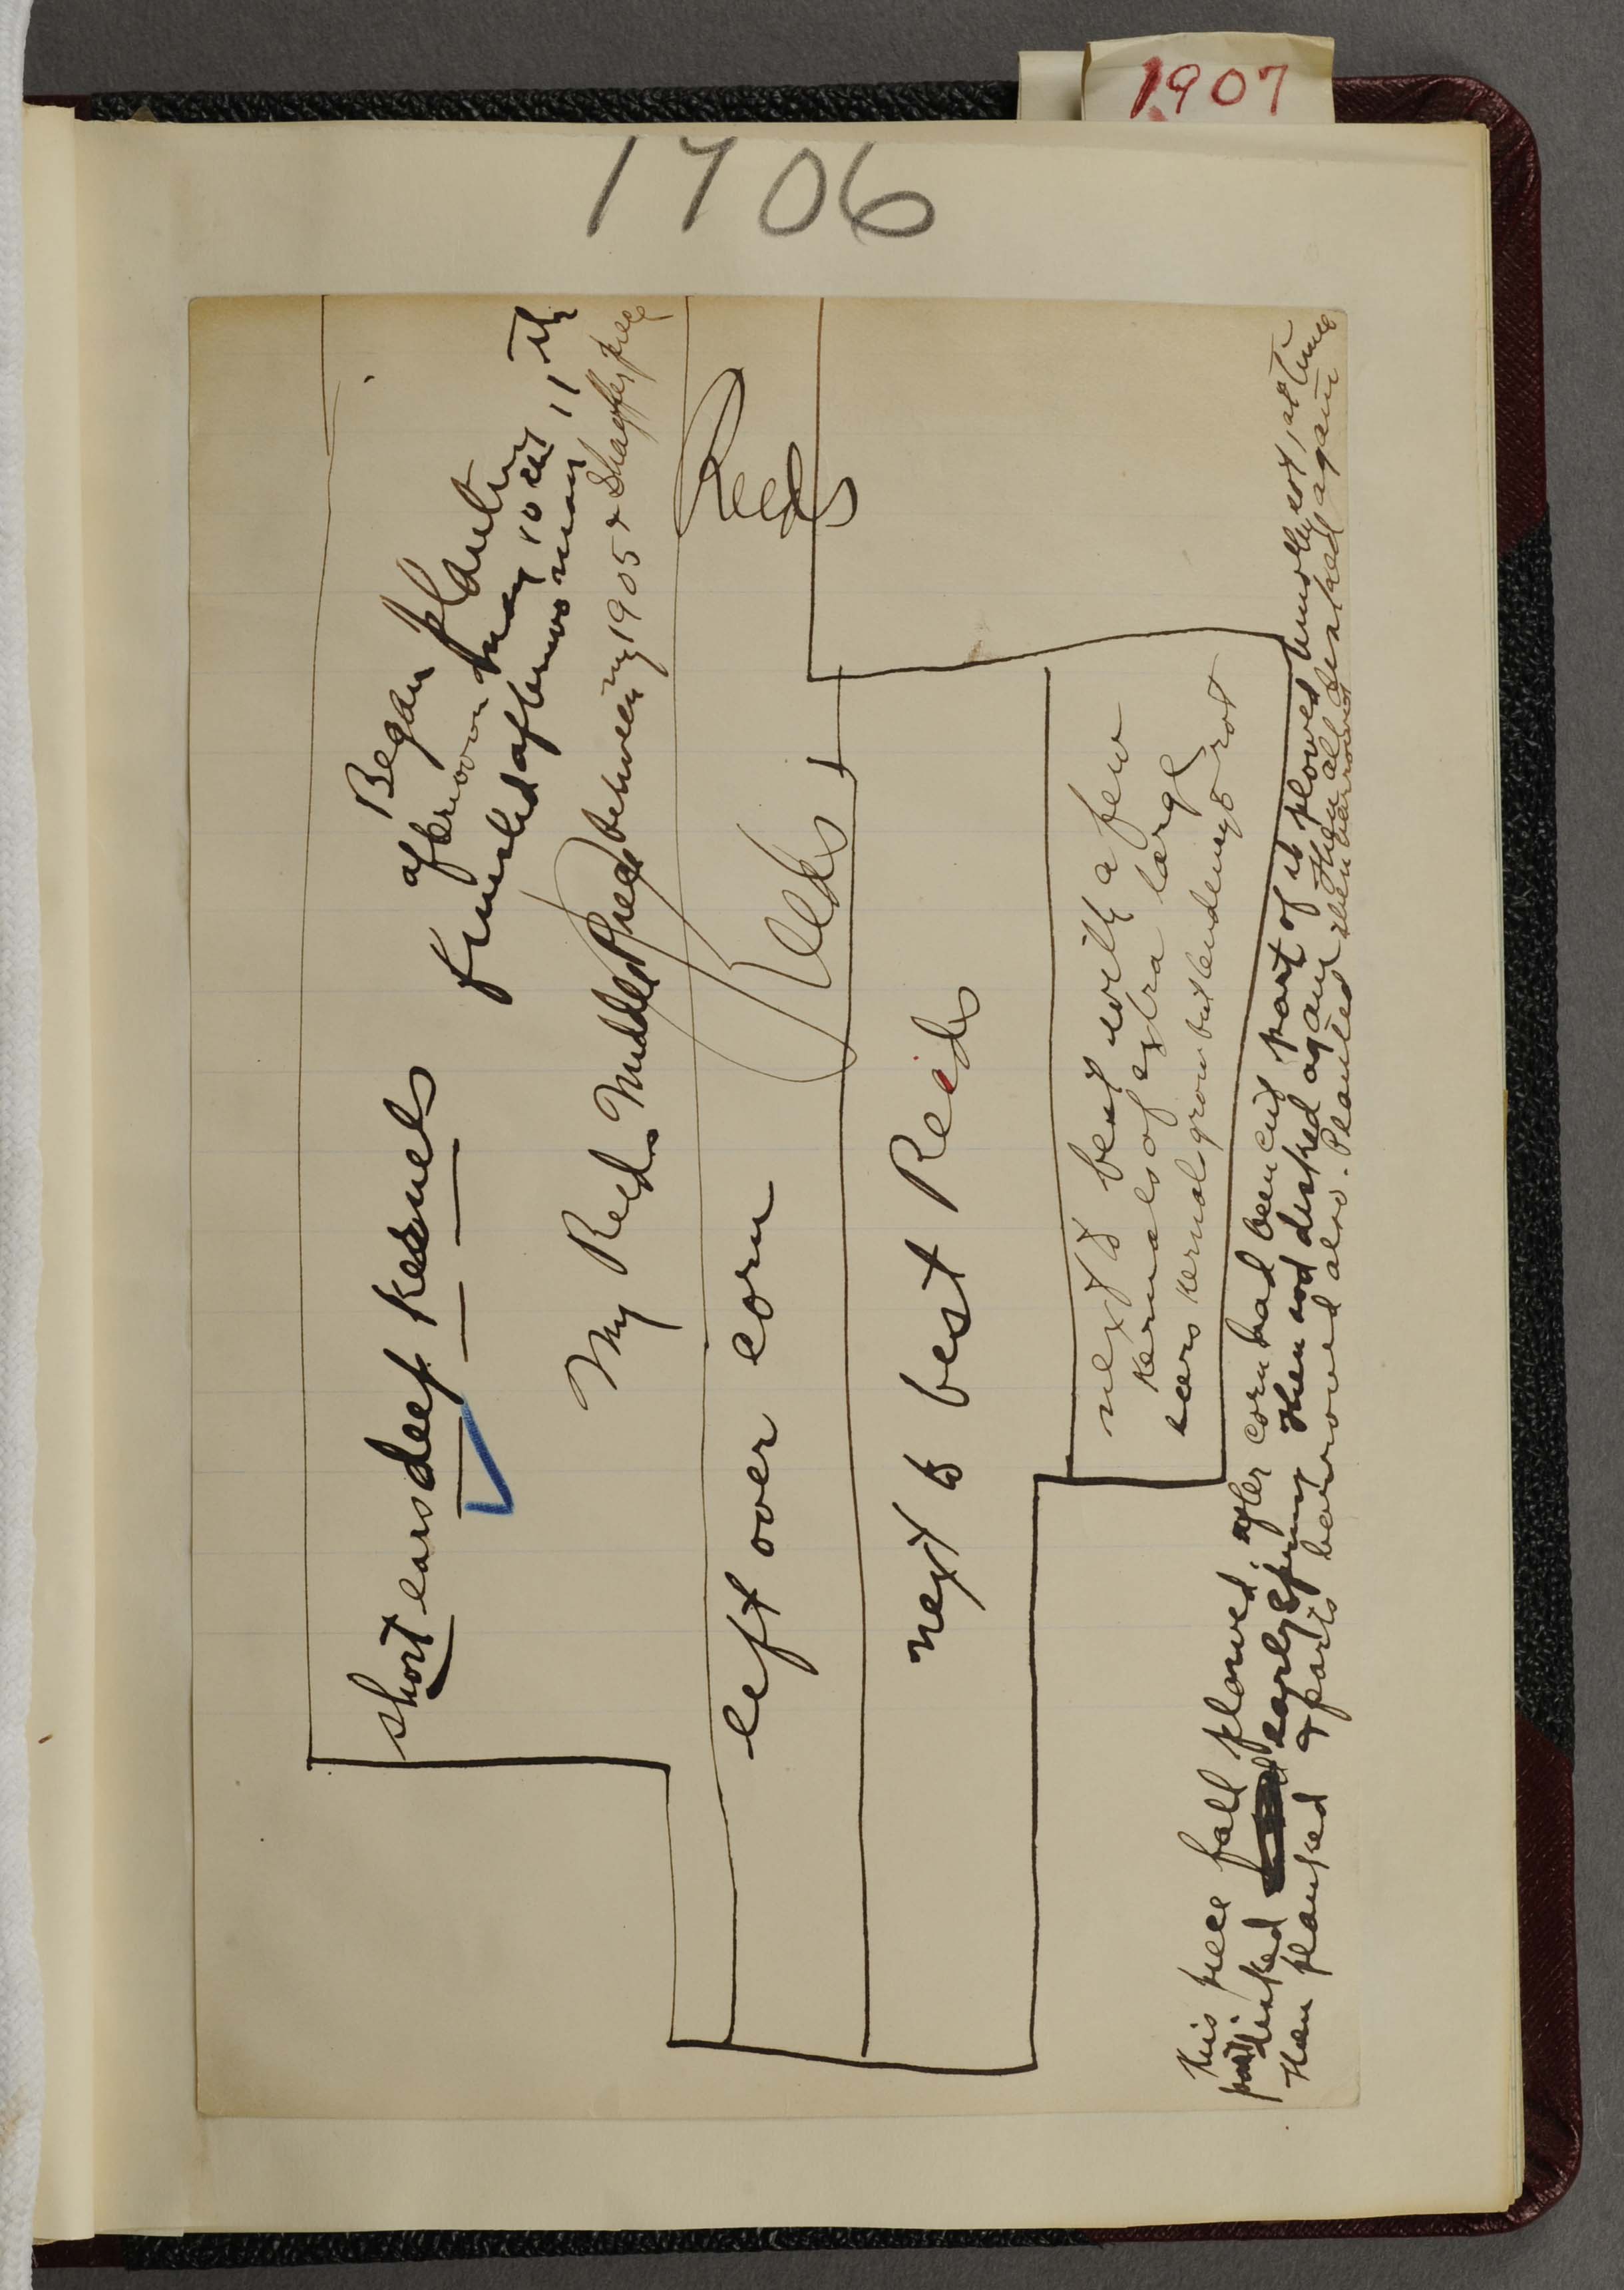 1907
1906
Began planting
afternoon May 10 at
Finished afternoon May 11th
short ears deep kernels
My Reeds Middle Piece between my 1905 &
Reeds
Reeds
left over corn
next to best Reids
next to best with a few
kernals of extra large
ears kernals grow but tendency to rot
This piece fall plowed. after corn had been cut part of it plowed
disked early spring then disked again then all disked again
then planked & parts harrowed also. Planted then harrowed